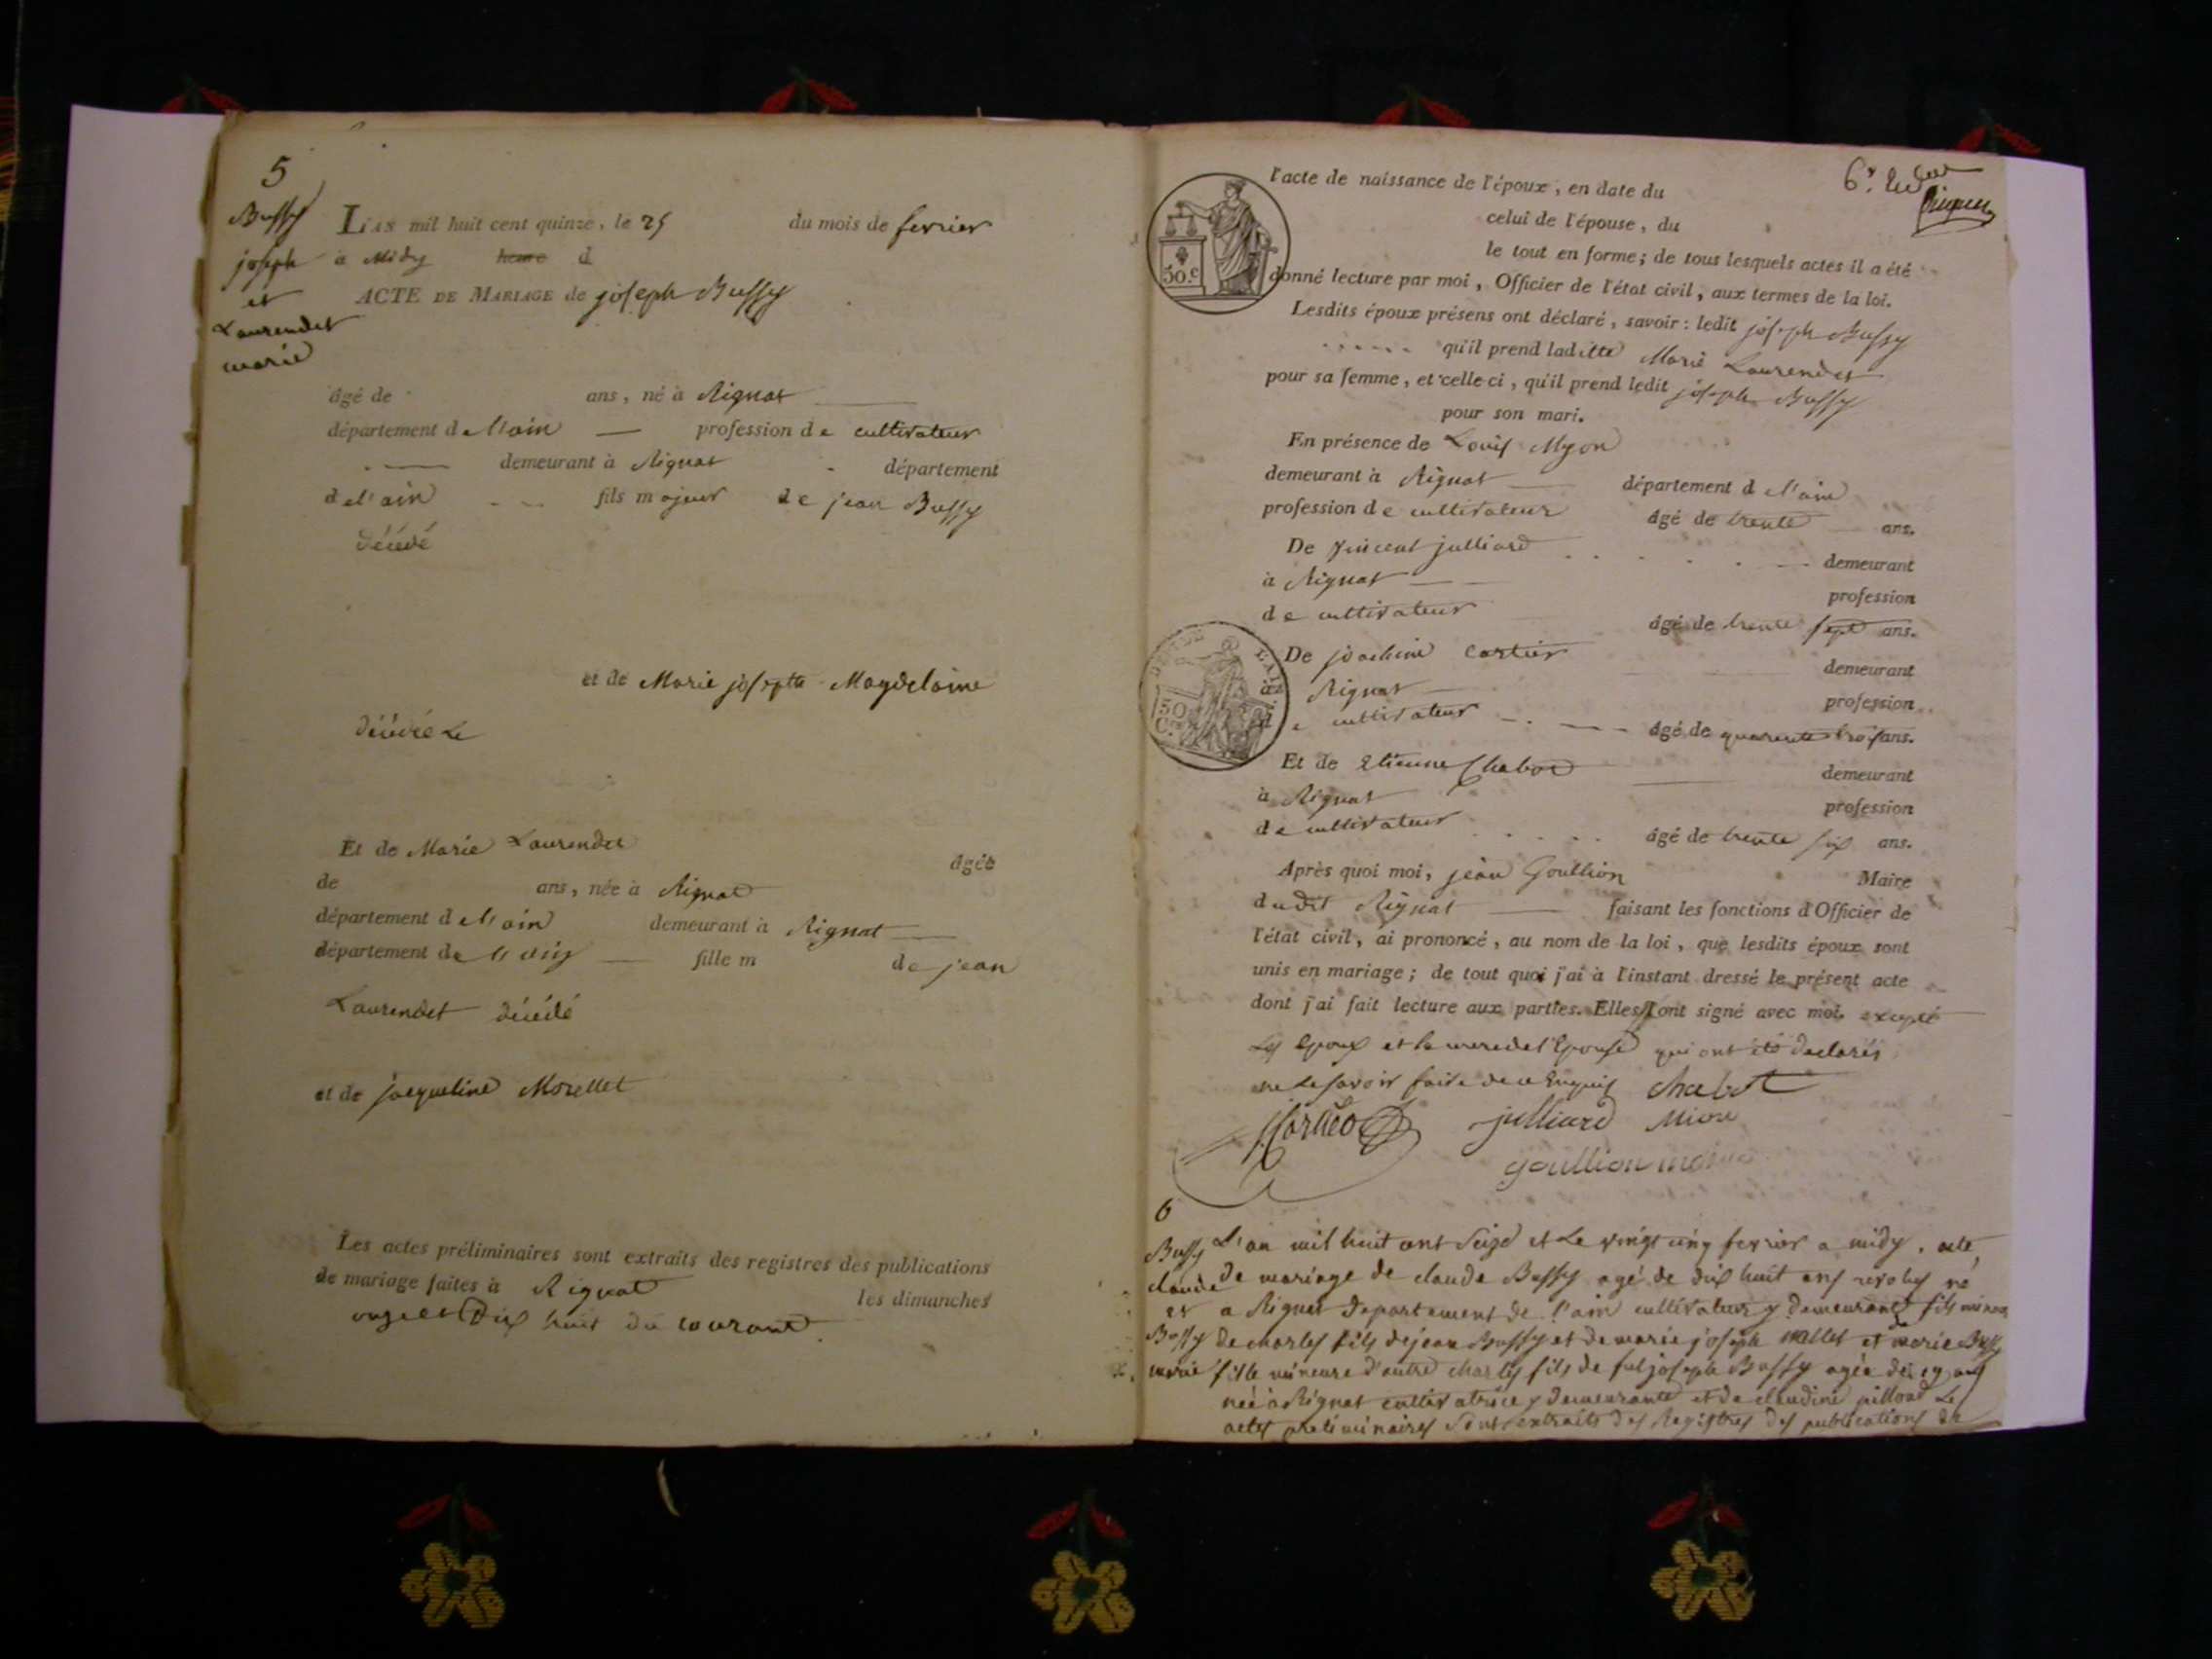 5
Bussy
joseph
et
Laurendet
marie
L'AN mil huit cent quinze, le 25 du mois de fevrier
à Midy heure d
ACTE DE MARIAGE de joseph Bussy
âgé de ans, né à Rignat
département de l'ain profession de cultivateur
demeurant à Rignat département
de l'ain fils majeur de jean Bussy
décédé
et de Marie josephte Magdelaine
décédée Le
Et de Marie Laurendet âgée
de ans, née à Rignat
département de l'ain demeurant à Rignat
département de fille m de jean
Laurendet décédé
et de jacqueline Morellet
Les actes préliminaires sont extraits des registres des publications
de mariage faites à Rignat les dimanches
onze et Dix huit du courant.
6e.
l'acte de naissance de l'époux, en date du
celui de l'épouse, du
le tout en forme; de tous lesquels actes il a été
donné lecture par moi, Officier de l'état civil, aux termes de la loi.
50.c
Lesdits époux présens ont déclaré, savoir: ledit joseph Bussy
qu'il prend laditte Marie Laurendet
pour sa femme, et celle-ci, qu'il prend ledit joseph Bussy
pour son mari.
En présence de Louis Myon
demeurant à Rignat département de l'ain
profession de cultivateur âgé de trente ans.
De Vincent julliard demeurant
à Rignat profession
de cultivateur âgé de trente sept ans.
De joachim Cartier demeurant
à Rignat profession
de cultivateur âgé de quarente trois ans.
50
Et de Etienne Chabot demeurant
à Rignat profession
de cultivateur âgé de trente six ans.
Après quoi moi, jean Goullion Maire
dudit Rignat faisant les fonctions d'Officier de
l'état civil, ai prononcé, au nom de la loi, que lesdits époux sont
unis en mariage; de tout quoi j'ai à l'instant dressé le présent acte
dont j'ai fait lecture aux parties. Elles l'ont signé avec moi, excepté
Les Epoux et la mere de l'Epouse qui ont été declarés
ne Le savoir faire de ce Enquis chabot
julliard Mion
goullion maire
6
Bussy
claude
et
Bussy
marie
L'an mil huit cent Seize et Le vingt cinq fevrier a midy, acte
De mariage de claude Bussy agé de dix huit ans revolus né
a Rignat Departement de l'ain cultivateur y demeurant fils mineur
de charles fils de jean Bussy et de marie joseph mallet et de marie Bussy
fille mineure d'autre charles fils de fut joseph Bussy agée de 19 ans
née à Rignat cultivatrice y demeurante et de claudine Les
actes preliminaires Sont extraits des Registres des publications de